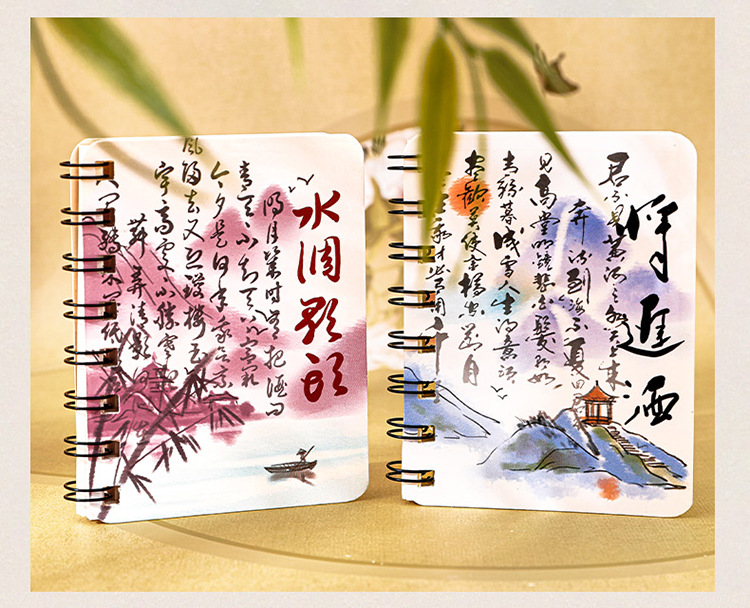 水调歌头
明月几时有把酒问
青天不知天上宫阙
今夕是何年我欲乘
风归去又恐琼楼玉
宇高处不胜寒
舞弄清影
将進酒
君不見黄河之水天上来
奔流到海不復回
見高堂明鏡悲白髮朝如
青絲暮成雪人生得意須
盡歡莫使金樽空對月
天生我材必有用千